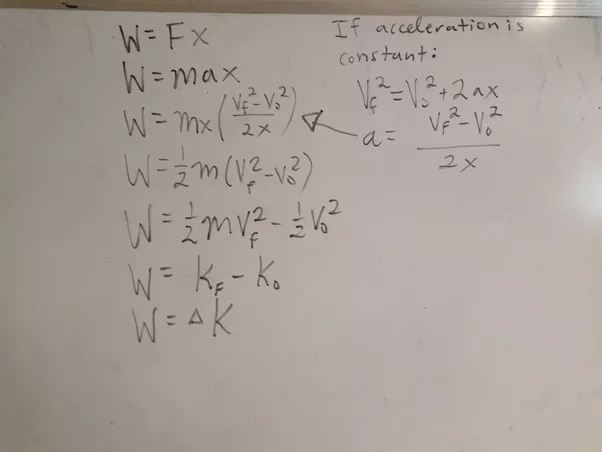 W = Fx
W = max
W = mx(Vf²-V₀²/2x)
W = ½m(Vf²-V₀²)
W = ½mVf² - ½V₀²
W = Kf - K₀
W = ΔK
If acceleration is
constant:
Vf² = V₀² + 2ax
a = Vf² - V₀²/2x